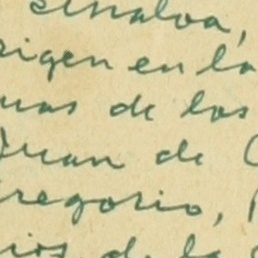 Sinaloa,
rigen en la
uas de los
Juan de
Gregorio,
ios de la